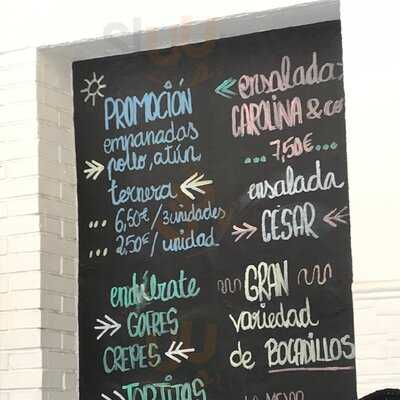 PROMOCIÓN
empanadas
pollo, atún,
ternera
6,50€/3 unidades
2,50€/unidad
endúlzate
GOFRES
CREPES
TORTITAS
ensaladas
CAROLINA & co
... 7,50€ ...
ensalada
CÉSAR
GRAN
variedad
de BOCADILLOS
LA MEJOR